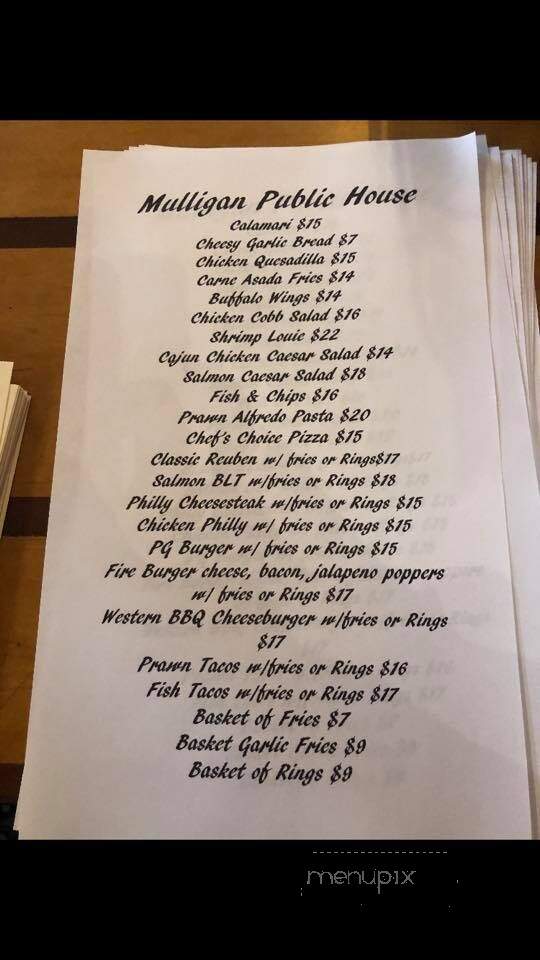 Mulligan Public House
Calamari $15
Cheesy Garlic Bread $7
Chicken Quesadilla $15
Carne Asada Fries $14
Buffalo Wings $14
Chicken Cobb Salad $16
Shrimp Louie $22
Cajun Chicken Caesar Salad $14
Salmon Caesar Salad $18
Fish & Chips $16
Prawn Alfredo Pasta $20
Chef's Choice Pizza $15
Classic Reuben w/ fries or Rings$17
Salmon BLT w/fries or Rings $18
Philly Cheesesteak w/fries or Rings $15
Chicken Philly w/ fries or Rings $15
PG Burger w/ fries or Rings $15
Fire Burger cheese, bacon, jalapeno poppers
w/ fries or Rings $17
Western BBQ Cheeseburger w/fries or Rings
$17
Prawn Tacos w/fries or Rings $16
Fish Tacos w/fries or Rings $17
Basket of Fries $7
Basket Garlic Fries $9
Basket of Rings $9
menupix